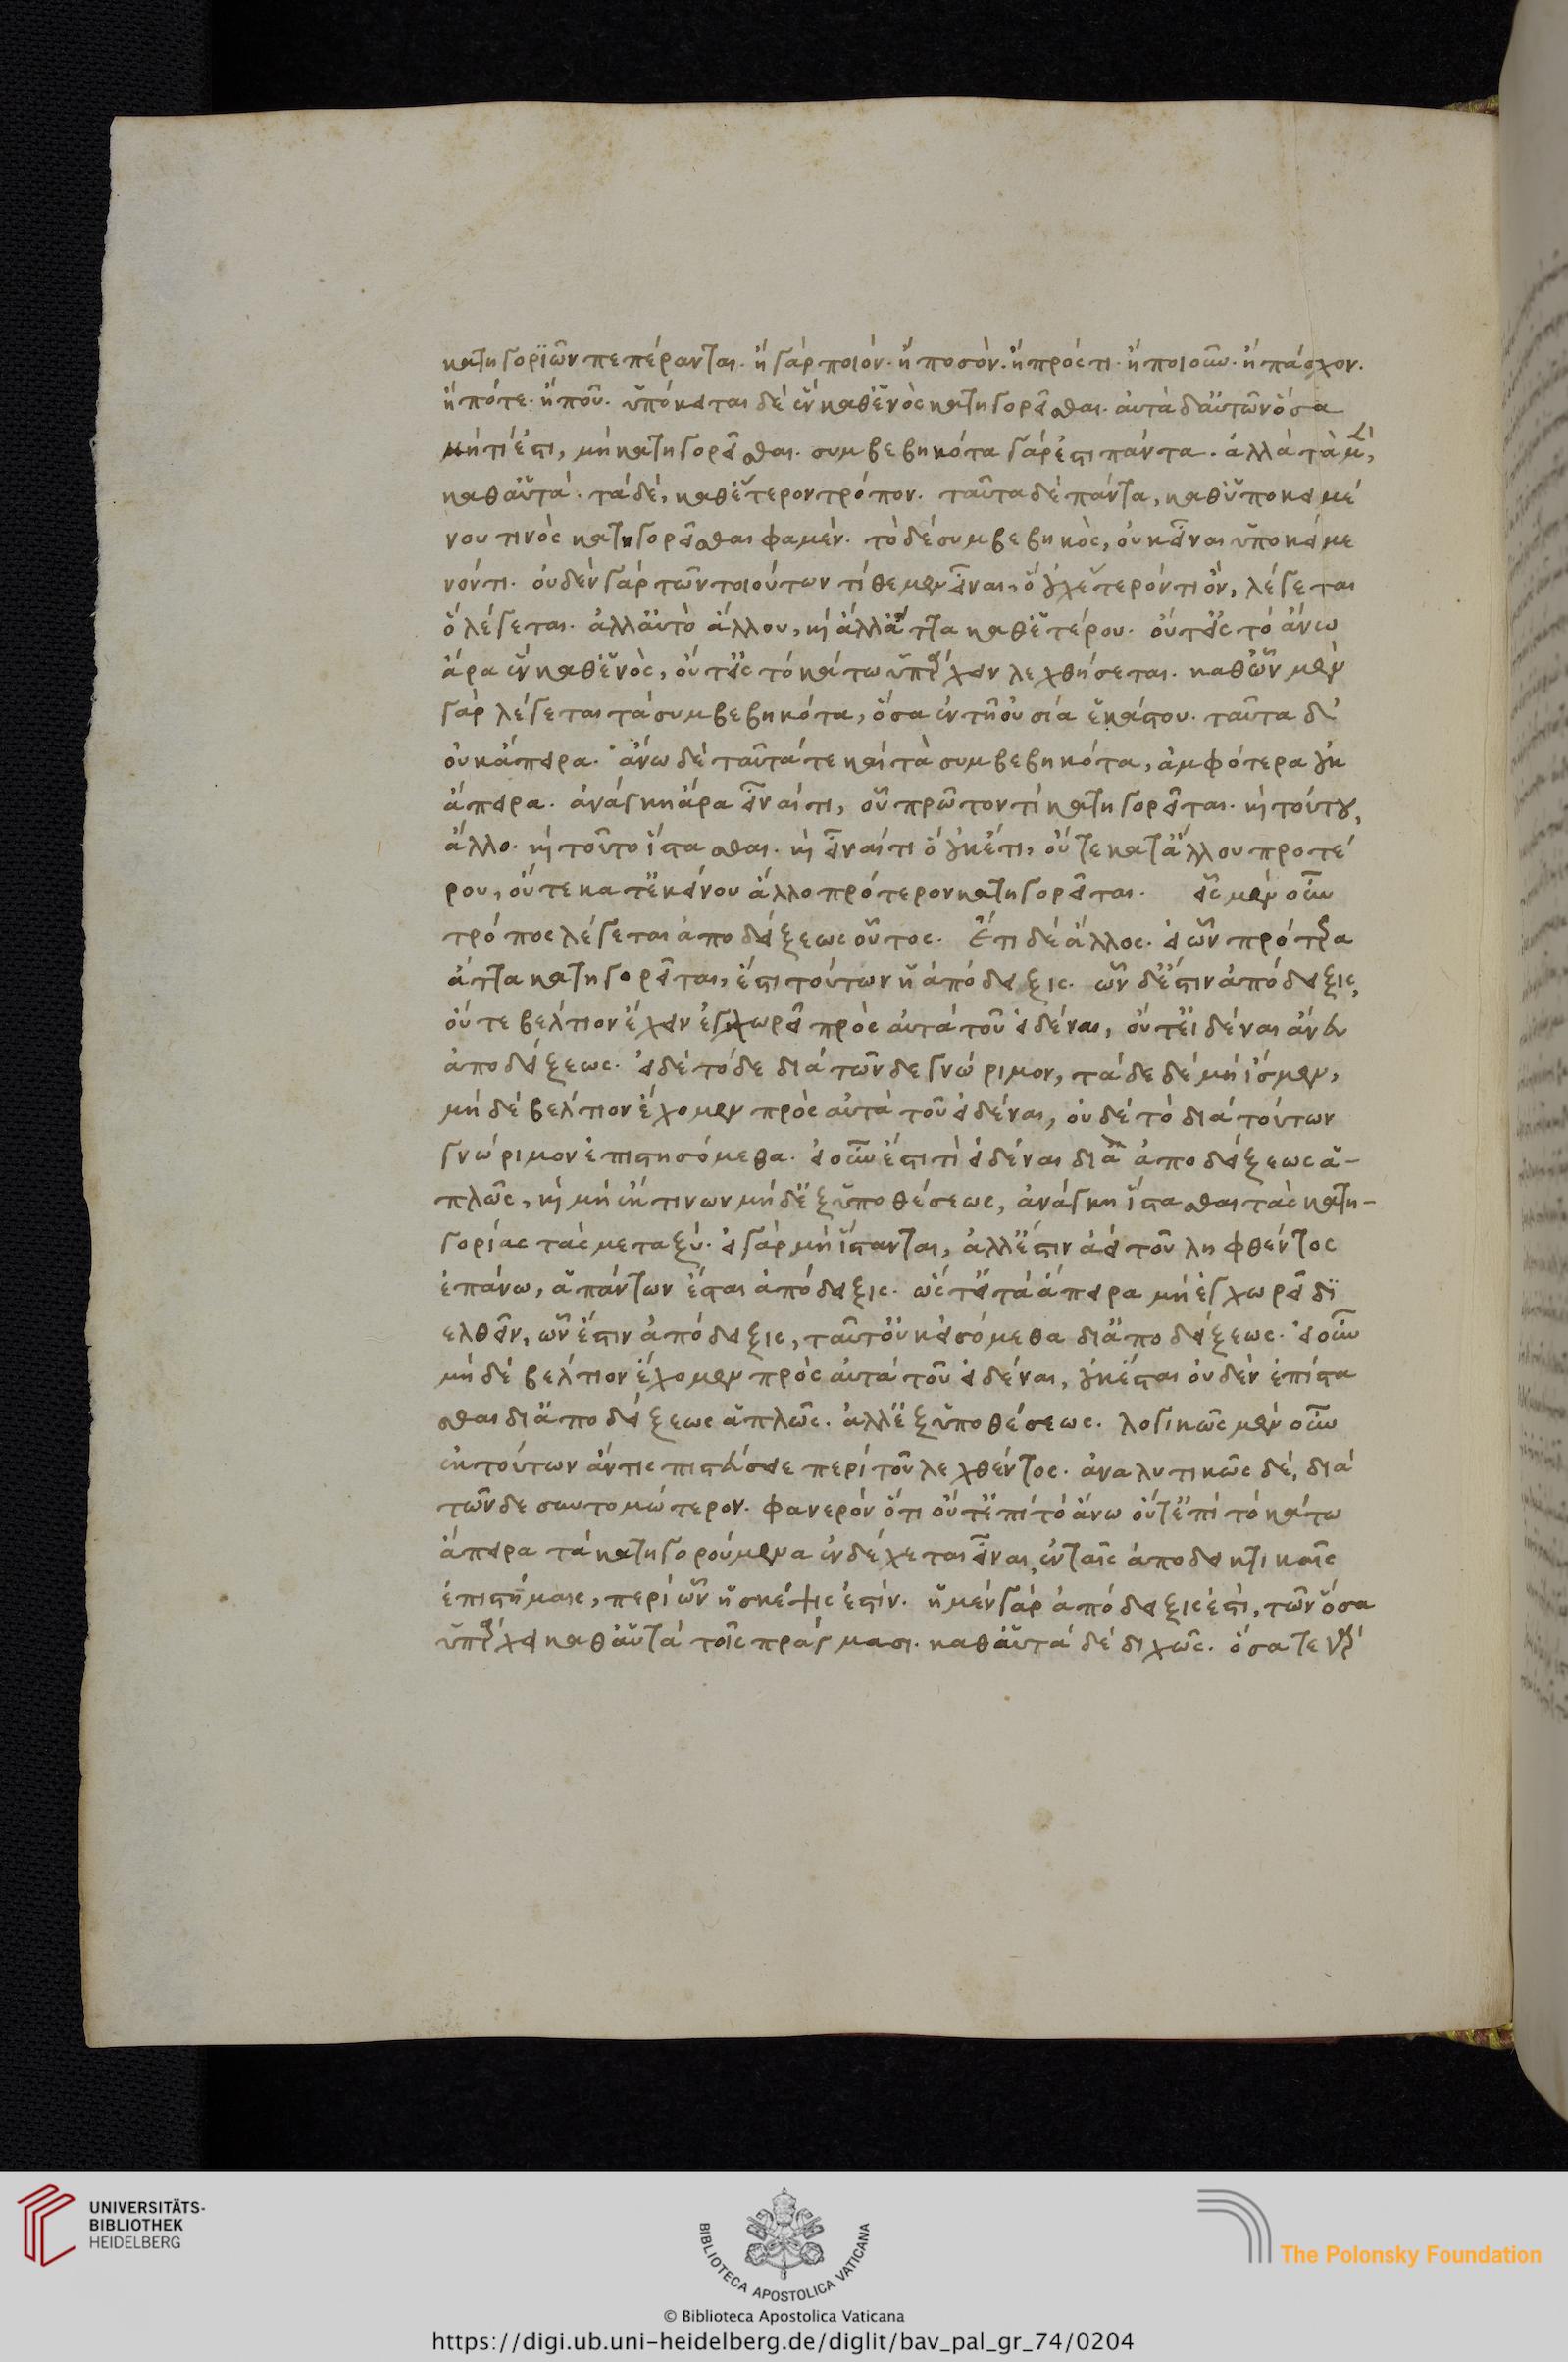 κατηγοριῶν πεπέρανται. ἢ γὰρ ποιόν. ἢ ποσόν. ἢ πρός τι. ἢ ποιοῦν. ἢ πάσχον.
ἢ πότε. ἢ ποῦ. ὑπόκειται δὲ ἓν καθ' ἑνὸς κατηγορεῖσθαι. αὐτὰ δ' αὑτῶν ὅσα
μὴ τί ἐστι, μὴ κατηγορεῖσθαι. συμβεβηκότα γάρ ἐστι πάντα. ἀλλὰ τὰ μὲν,
καθ' αὑτά. τὰ δὲ, καθ' ἕτερον τρόπον. ταῦτα δὲ πάντα, καθ' ὑποκειμέ
νου τινὸς κατηγορεῖσθαι φαμέν. τὸ δὲ συμβεβηκὸς, οὐκ εἶναι ὑποκείμε
νόν τι. οὐδὲν γὰρ τῶν τοιούτων τίθεμεν εἶναι, ὃ οὐχ ἕτερόν τι ὂν, λέγεται
ὃ λέγεται. ἀλλ' αὐτὸ ἄλλου, καὶ ἄλλ' ἄττα καθ' ἑτέρου. οὔτ' εἰς τὸ ἄνω
ἄρα ἓν καθ' ἑνὸς, οὔτ' εἰς τὸ κάτω ὑπάρχειν λεχθήσεται. καθ' ὧν μὲν
γὰρ λέγεται τὰ συμβεβηκότα, ὅσα ἐν τῇ οὐσία ἑκάστου. ταῦτα δὲ
οὐκ ἄπειρα. ἄνω δὲ ταῦτά τε καὶ τὰ συμβεβηκότα, ἀμφότερα οὐκ
ἄπειρα. ἀνάγκη ἄρα εἶναί τι, οὗ πρῶτόν τι κατηγορεῖται. καὶ τούτου,
ἄλλο. καὶ τοῦτο ἵστασθαι. καὶ εἶναί τι ὃ οὐκέτι, οὔτε κατ' ἄλλου προτέ
ρου, οὔτε κατ' ἐκείνου ἄλλο πρότερον κατηγορεῖται. εἷς μὲν οὖν
τρόπος λέγεται ἀποδείξεως οὗτος. Ἔτι δὲ ἄλλος. εἰ ὧν πρότερα
ἄττα κατηγορεῖται, ἔστι τούτων ἡ ἀπόδειξις. ὧν δ' ἔστιν ἀπόδειξις,
οὔτε βέλτιον ἔχειν ἐγχωρεῖ πρὸς αὐτὰ τοῦ εἰδέναι, οὔτ' εἰδέναι ἄνευ
ἀποδείξεως. εἰ δὲ τόδε διὰ τῶνδε γνώριμον, τάδε δὲ μὴ ἴσμεν,
μὴ δὲ βέλτιον ἔχομεν πρὸς αὐτὰ τοῦ εἰδέναι, οὐδὲ τὸ διὰ τούτων
γνώριμον ἐπιστησόμεθα. εἰ οὖν ἔστι τὶ εἰδέναι δι' ἀποδείξεως ἁ-
πλῶς, καὶ μὴ ἐκ τινων μὴ δ' ἐξ ὑποθέσεως, ἀνάγκη ἵστασθαι τὰς κατη-
γορίας τὰς μεταξύ. εἰ γὰρ μὴ ἵστανται, ἀλλ' ἔστιν ἀεὶ τοῦ ληφθέντος
ἐπάνω, ἁπάντων ἔσται ἀπόδειξις. ὥστ' εἰ τὰ ἄπειρα μὴ ἐγχωρεῖ δι
ελθεῖν, ὧν ἔστιν ἀπόδειξις, ταῦτ' οὐκ εἰσόμεθα δι' ἀποδείξεως. εἰ οὖν
μὴ δὲ βέλτιον ἔχομεν πρὸς αὐτὰ τοῦ εἰδέναι, οὐκ ἔσται οὐδὲν ἐπίστα
σθαι δι' ἀποδείξεως ἁπλῶς. ἀλλ' ἐξ ὑποθέσεως. λογικῶς μὲν οὖν
ἐκ τούτων ἄν τις πιστεύσειε περὶ τοῦ λεχθέντος. ἀναλυτικῶς δὲ, διὰ
τῶνδε συντομώτερον. φανερὸν ὅτι οὔτ' ἐπὶ τὸ ἄνω οὔτ' ἐπὶ τὸ κάτω
ἄπειρα τὰ κατηγορούμενα ἐνδέχεται εἶναι ἐν ταῖς ἀποδεικτικαῖς
ἐπιστήμαις, περὶ ὧν ἡ σκέψις ἐστίν. ἡ μὲν γὰρ ἀπόδειξις ἐστὶ, τῶν ὅσα
ὑπάρχει καθ' αὑτὰ τοῖς πράγμασι. καθ' αὑτὰ δὲ διχῶς. ὅσα τε γὰρ
UNIVERSITÄTS-
BIBLIOTHEK
HEIDELBERG
BIBLIOTECA APOSTOLICA VATICANA
The Polonsky Foundation
© Biblioteca Apostolica Vaticana
https://digi.ub.uni-heidelberg.de/diglit/bav_pal_gr_74/0204